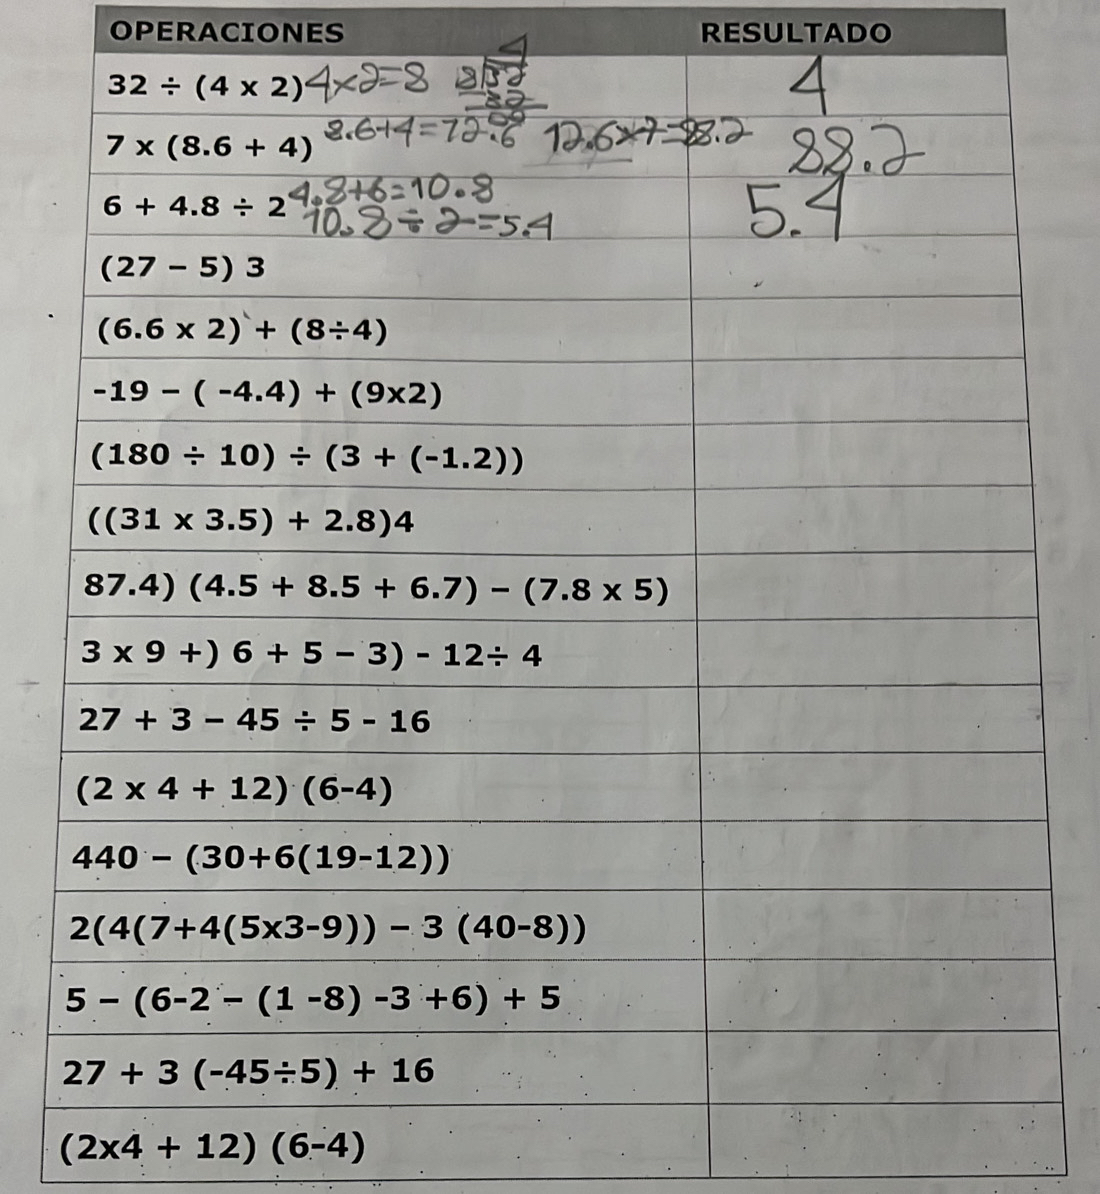 OPERACIONES RESULTADO
32 ÷ (4 x 2) 4x2=8 8 32 4 32 00 4
7 x (8.6 + 4) 8.6+4=12.6 12.6x7=88.2 88.2
6 + 4.8 ÷ 2 4.8+6=10.8 5.4
10.8÷2=5.4
(27 – 5) 3
(6.6 x 2) + (8÷4)
-19 – ( -4.4) + (9x2)
(180 ÷ 10) ÷ (3 + (-1.2))
((31 x 3.5) + 2.8)4
87.4) (4.5 + 8.5 + 6.7) – (7.8 x 5)
3 x 9 +) 6 + 5 – 3) - 12÷ 4
27 + 3 – 45 ÷ 5 - 16
(2 x 4 + 12) (6-4)
440 – (30+6(19-12))
2(4(7+4(5x3-9)) – 3 (40-8))
5 – (6-2 – (1 -8) -3 +6) + 5
27 + 3 (-45÷5) + 16
(2x4 + 12) (6-4)